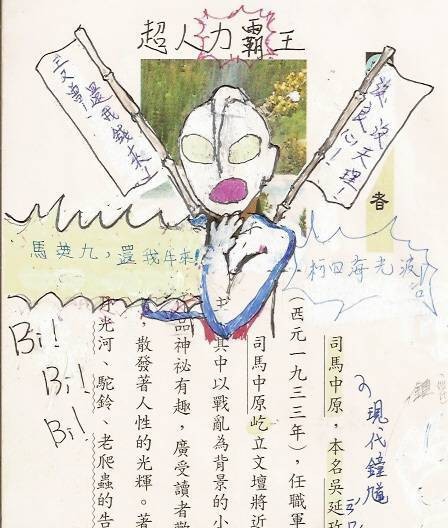 超人力霸王
還我錢來!
沒天理!
良心!!
者
馬英九,還我牛來!
柯四海光波
Bi!
Bi!
Bi!
現代鐘馗
司馬中原,本名吳延玫
(西元一九三三年),任職軍
司馬中原屹立文壇將近
其中以戰亂為背景的小
品神祕有趣,廣受讀者歡
,散發著人性的光輝。著
月光河、駝鈴、老爬蟲的告